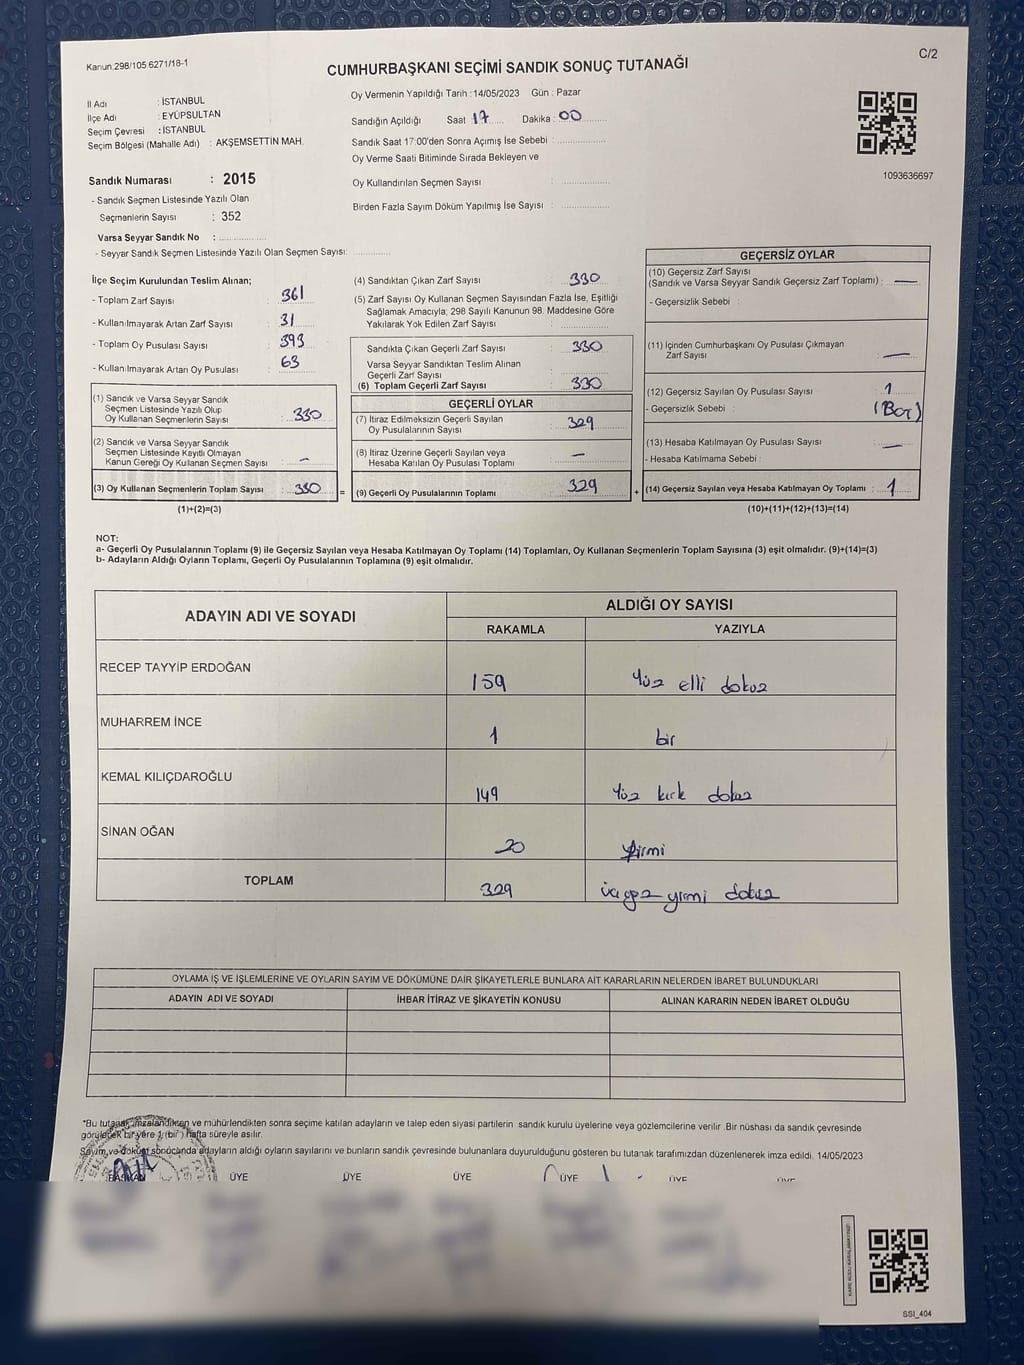 Kanun:298/105 6271/18-1
C/2
CUMHURBAŞKANI SEÇİMİ SANDIK SONUÇ TUTANAĞI
İl Adı : İSTANBUL
İlçe Adı : EYÜPSULTAN
Seçim Çevresi : İSTANBUL
Seçim Bölgesi (Mahalle Adı) : AKŞEMSETTİN MAH.
Oy Vermenin Yapıldığı Tarih :14/05/2023 Gün : Pazar
Sandığın Açıldığı Saat 17 Dakika : 00
Sandık Saat 17:00'den Sonra Açımış İse Sebebi :
Oy Verme Saati Bitiminde Sırada Bekleyen ve
Oy Kullandırılan Seçmen Sayısı :
Birden Fazla Sayım Döküm Yapılmış İse Sayısı :
1093636697
Sandık Numarası : 2015
- Sandık Seçmen Listesinde Yazılı Olan
Seçmenlerin Sayısı : 352
Varsa Seyyar Sandık No :
- Seyyar Sandık Seçmen Listesinde Yazılı Olan Seçmen Sayısı:
İlçe Seçim Kurulundan Teslim Alınan;
- Toplam Zarf Sayısı : 361
- Kullanılmayarak Artan Zarf Sayısı : 31
- Toplam Oy Pusulası Sayısı : 393
- Kullanılmayarak Artan Oy Pusulası : 63
(1) Sandık ve Varsa Seyyar Sandık
Seçmen Listesinde Yazılı Olup
Oy Kullanan Seçmenlerin Sayısı : 330
(2) Sandık ve Varsa Seyyar Sandık
Seçmen Listesinde Kayıtlı Olmayan
Kanun Gereği Oy Kullanan Seçmen Sayısı : –
(3) Oy Kullanan Seçmenlerin Toplam Sayısı : 330 =
(1)+(2)=(3)
(4) Sandıktan Çıkan Zarf Sayısı : 330
(5) Zarf Sayısı Oy Kullanan Seçmen Sayısından Fazla İse, Eşitliği
Sağlamak Amacıyla; 298 Sayılı Kanunun 98. Maddesine Göre
Yakılarak Yok Edilen Zarf Sayısı :
Sandıkta Çıkan Geçerli Zarf Sayısı : 330
Varsa Seyyar Sandıktan Teslim Alınan
Geçerli Zarf Sayısı :
(6) Toplam Geçerli Zarf Sayısı : 330
GEÇERLİ OYLAR
(7) İtiraz Edilmeksizin Geçerli Sayılan
Oy Pusulalarının Sayısı : 329
(8) İtiraz Üzerine Geçerli Sayılan veya
Hesaba Katılan Oy Pusulası Toplamı : –
(9) Geçerli Oy Pusulalarının Toplamı : 329 +
GEÇERSİZ OYLAR
(10) Geçersiz Zarf Sayısı
(Sandık ve Varsa Seyyar Sandık Geçersiz Zarf Toplamı) : —
- Geçersizlik Sebebi :
(11) İçinden Cumhurbaşkanı Oy Pusulası Çıkmayan
Zarf Sayısı : —
(12) Geçersiz Sayılan Oy Pusulası Sayısı : 1
- Geçersizlik Sebebi :
(13) Hesaba Katılmayan Oy Pusulası Sayısı : —
- Hesaba Katılmama Sebebi :
(14) Geçersiz Sayılan veya Hesaba Katılmayan Oy Toplamı : 1
(10)+(11)+(12)+(13)=(14)
NOT:
a- Geçerli Oy Pusulalarının Toplamı (9) ile Geçersiz Sayılan veya Hesaba Katılmayan Oy Toplamı (14) Toplamları, Oy Kullanan Seçmenlerin Toplam Sayısına (3) eşit olmalıdır. (9)+(14)=(3)
b- Adayların Aldığı Oyların Toplamı, Geçerli Oy Pusulalarının Toplamına (9) eşit olmalıdır.
ADAYIN ADI VE SOYADI ALDIĞI OY SAYISI
RAKAMLA YAZIYLA
RECEP TAYYİP ERDOĞAN 159 Yüz elli dokuz
MUHARREM İNCE 1 bir
KEMAL KILIÇDAROĞLU 149 Yüz kırk dokuz
SİNAN OĞAN 20 Yirmi
TOPLAM 329 üçyüz yirmi dokuz
OYLAMA İŞ VE İŞLEMLERİNE VE OYLARIN SAYIM VE DÖKÜMÜNE DAİR ŞİKAYETLERLE BUNLARA AİT KARARLARIN NELERDEN İBARET BULUNDUKLARI
ADAYIN ADI VE SOYADI İHBAR İTİRAZ VE ŞİKAYETİN KONUSU ALINAN KARARIN NEDEN İBARET OLDUĞU
*Bu tutanak imzalandıktan ve mühürlendikten sonra seçime katılan adayların ve talep eden siyasi partilerin sandık kurulu üyelerine veya gözlemcilerine verilir. Bir nüshası da sandık çevresinde
görülecek bir yere 1 (bir) hafta süreyle asılır.
Sayım ve döküm sonucunda adayların aldığı oyların sayılarını ve bunların sandık çevresinde bulunanlara duyurulduğunu gösteren bu tutanak tarafımızdan düzenlenerek imza edildi. 14/05/2023
BAŞKAN ÜYE ÜYE ÜYE ÜYE ÜYE ÜYE
SSI_404